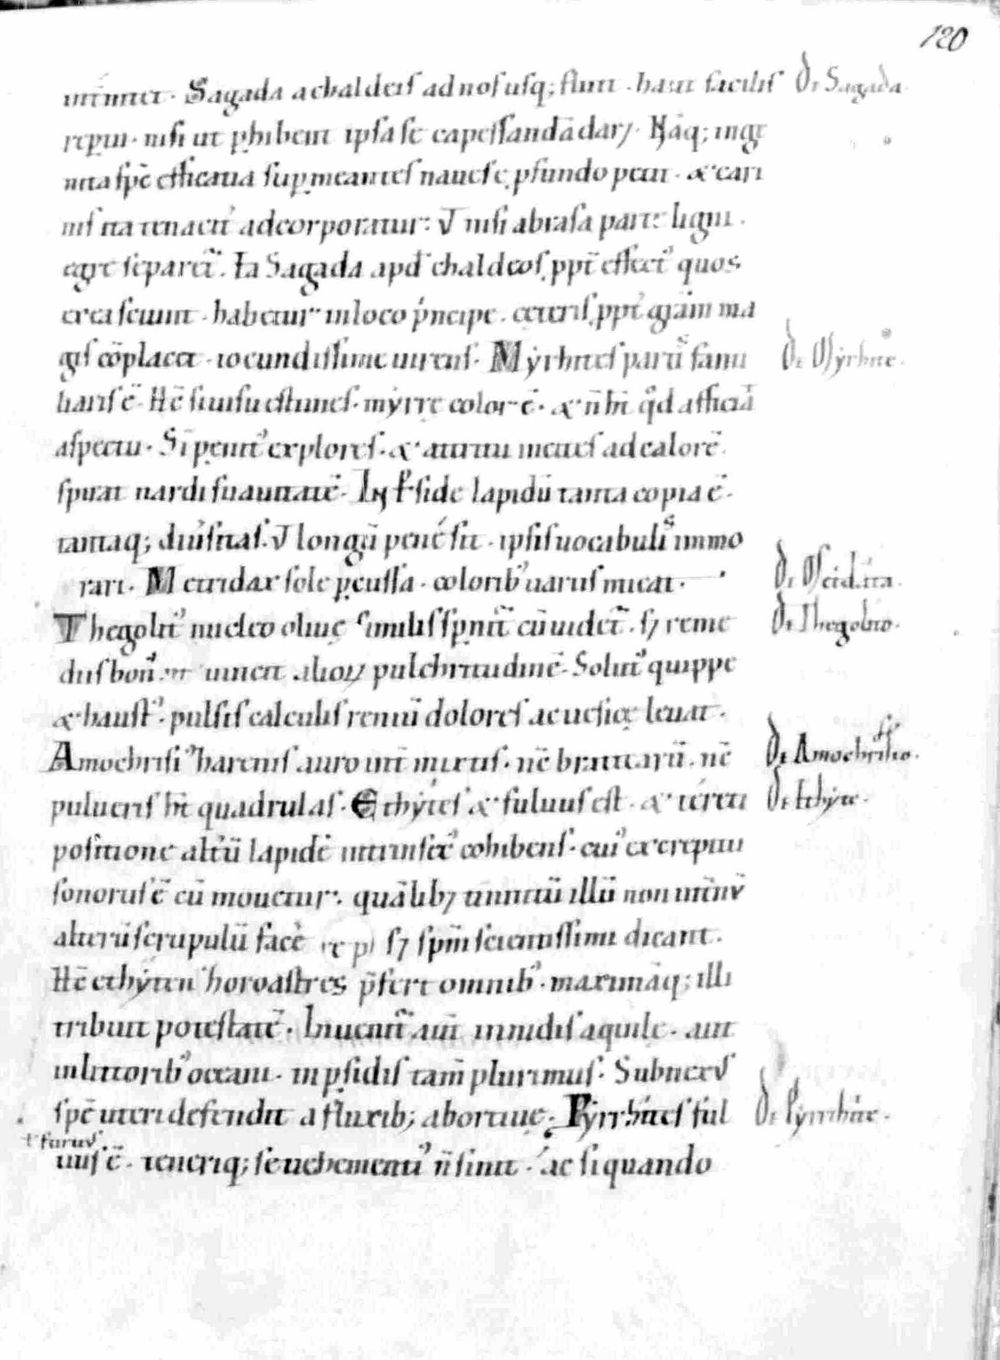 120
int̄nitet · Sagada a chaldeis ad nos usq; fluit · haut facilis
De Sagada
rep̱iri · nisi ut ꝑhibent ipsa se capessandā darꝫ · Nāq; inge
nita spē efficatia suꝑmeantes naues e ꝓfundo petit · & cari
nis ita tenacit̉ adcorporatur: Ut nisi abrasa parte ligni ·
egre separet᷑ · Ea Sagada apd̄ chaldeos ꝓpt̄ effect᷒ quos
ex ea sciunt · habetur in loco p̍ncipe · ceteris ꝓpt̄ grām ma
gis cōplacet · iocundissime uirens · Myrhites parū fami
De Myrhite ·
liaris ē · Hē si uisu estimes · myrre color ē · & n̄ h̄t qđ afficiat
aspectu · Si penit᷒ explores · & attritu incites ad calorē
spirat nardi suauitatē · In ꝑside lapidū tanta copia ē ·
tantaq; diu̍sitas · Ut longū pene sit · ipsis uocabulis immo
rari · M ctridax sole ꝑcussa · colorib᷒ uariis micat ·
Thegolit᷒ nucleo oliue similis sꝑnit᷑ cū uidet᷑ · sꝫ reme
De Thegolito ·
diis bon᷒ uincit alioꝝ pulchritudinē · Solut᷒ quippe
& haust᷒ · pulsis calculis reniū dolores ac uesice leuat ·
Amochrisi᷒ harenis auro int̄ mixtis · nc̄ brattearū · nc̄
De Amochrisso ·
pulueris h̄t quadrulas · Ethytes & fuluus est · & tereti
De Ethyte ·
positione alt̉ū lapidē intrinsec᷒ cohibens · cui᷒ ex crepitu
sonorus ē cū mouetur · quālibꝫ tinnitū illū non int̄n᷒
alterū scrupulū facē sꝫ spm̄ scientissimi dicant ·
Hē ethyten horoastres p̄fert omnib᷒ · maximāq; illi
tribuit potestatē · Inuenit᷑ aut̄ in nidis aquile · aut
in littorib᷒ oceani · in ꝑsidis tam̄ plurimus · Subnexus
spē uteri defendit a fluxib; abortiue · Pyrrhites ful
De Pyrrhite ·
ł furuus
uus ē · teneriq; se uehementi᷒ n̄ sinit · ac si quando